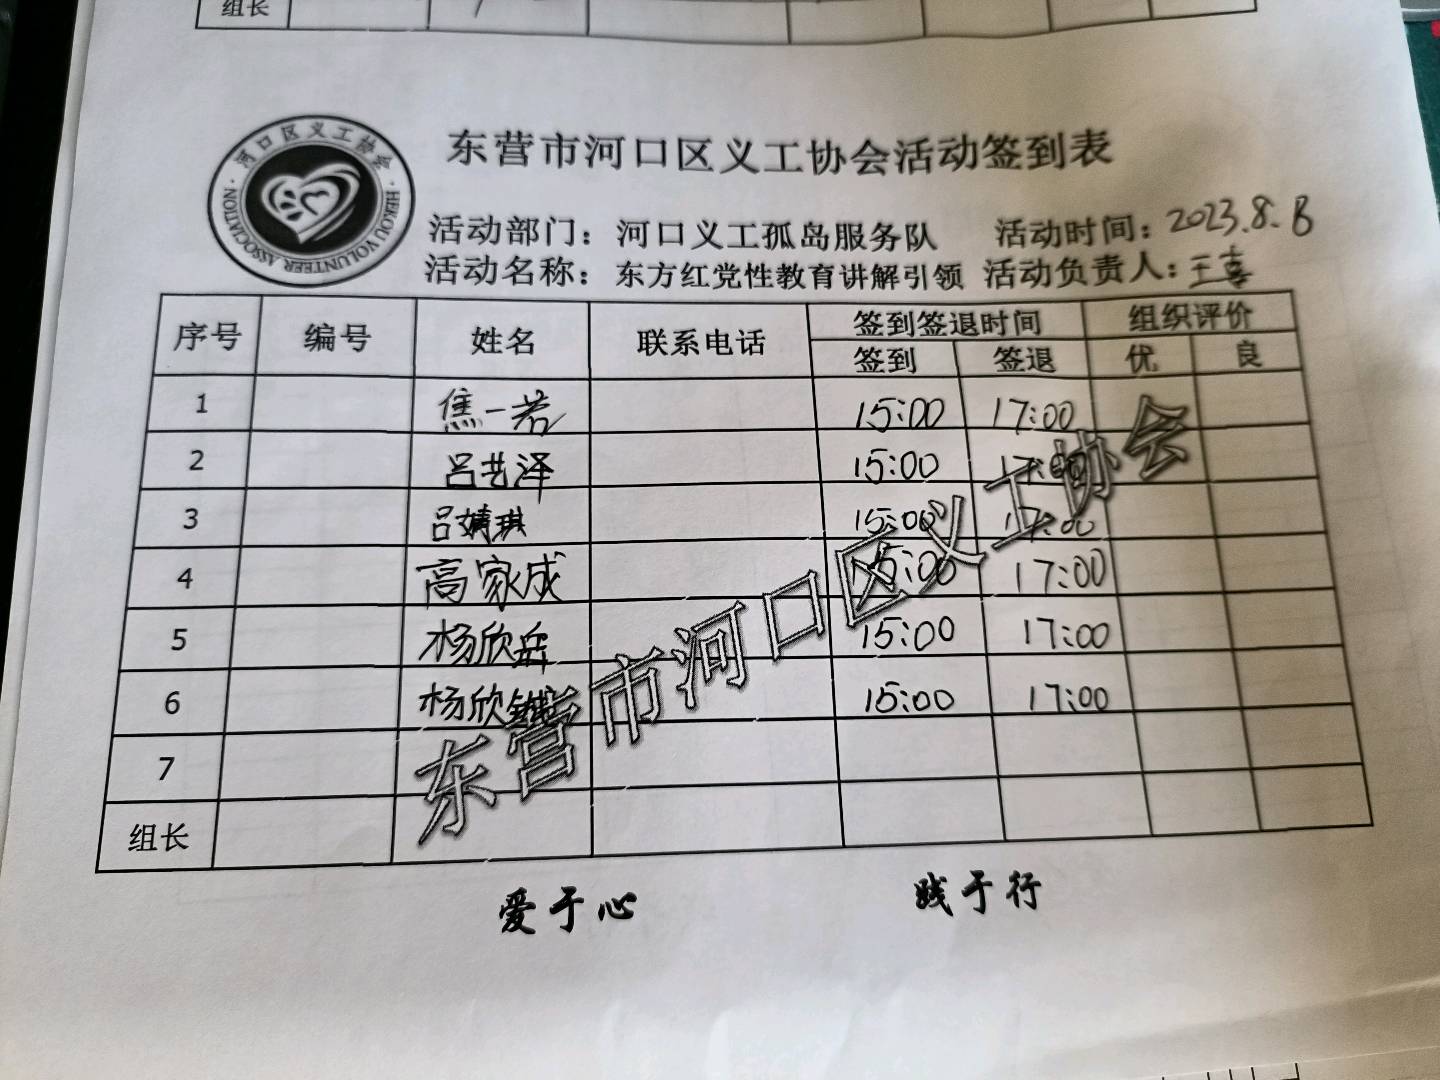 组长
河口区义工协会
HEKOU VOLUNTEER ASSOCIATION
东营市河口区义工协会活动签到表
活动部门：河口义工孤岛服务队 活动时间：2023.8.13
活动名称：东方红党性教育讲解引领 活动负责人：王喜
序号 编号 姓名 联系电话 签到签退时间 组织评价
签到 签退 优 良
1 焦一若 15:00 17:00
2 吕艺泽 15:00 17:00
3 吕婧琪 15:00 17:00
4 高家成 15:00 17:00
5 杨欣 15:00 17:00
6 杨欣 15:00 17:00
7
组长
东营市河口区义工协会
爱于心 践于行